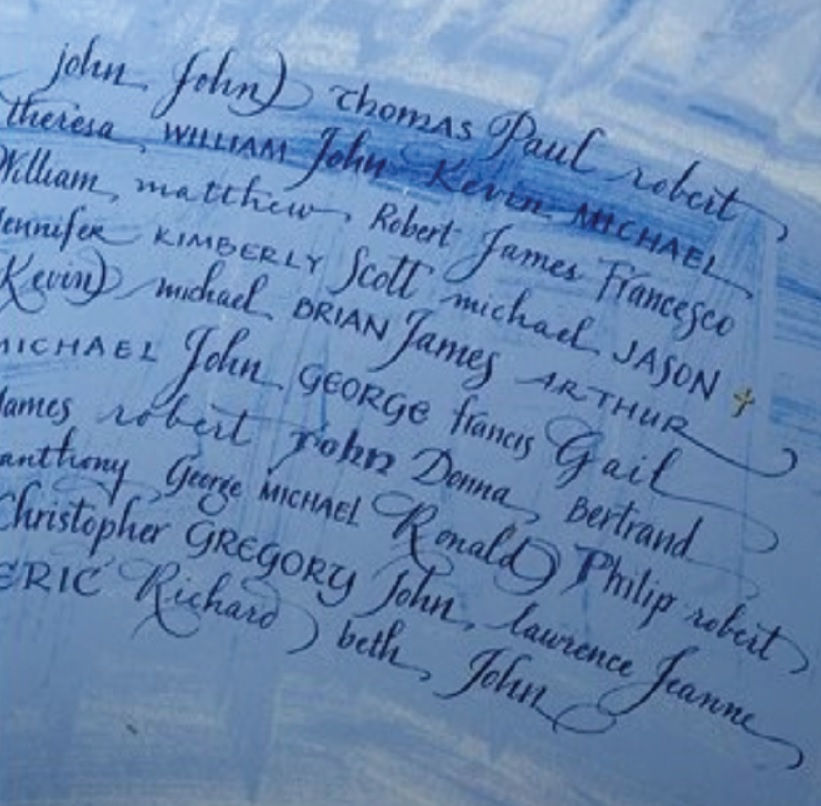 john John) Thomas Paul robert
theresa, WILLIAM John Kevin MICHAEL
William, matthew, Robert James Francesco
Jennifer KIMBERLY Scott michael JASON
Kevin) michael BRIAN James ARTHUR
MICHAEL John GEORGE francis Gail
James robert John Donna, Bertrand
anthony George MICHAEL Ronald) Philip robert
Christopher GREGORY John, lawrence Jeanne
ERIC Richard) beth, John